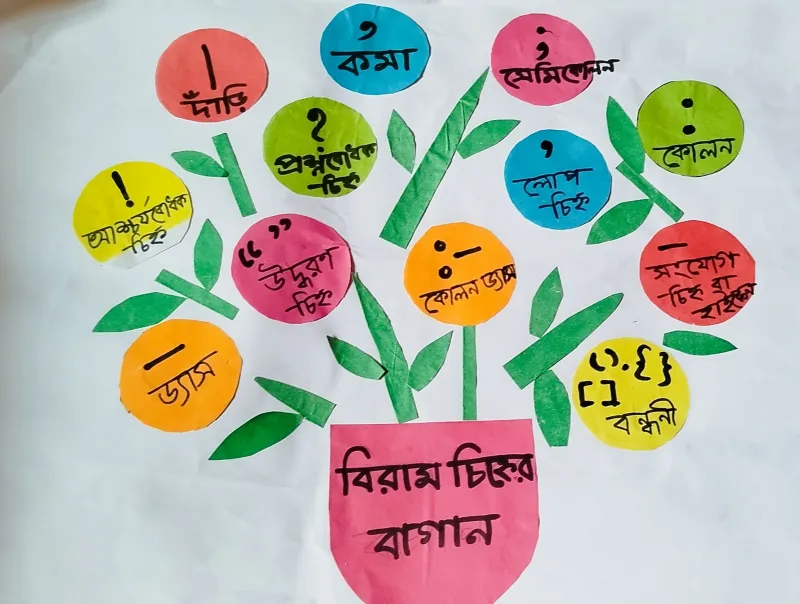 ।
দাঁড়ি
,
কমা
;
সেমিকোলন
?
প্রশ্নবোধক
চিহ্ন
:
কোলন
'
লোপ
চিহ্ন
!
আশ্চর্যবোধক
চিহ্ন
“ ”
উদ্ধরণ
চিহ্ন
:-
কোলন ড্যাস
-
সংযোগ
চিহ্ন বা
হাইফেন
—
ড্যাস
().{}
[]
বন্ধনী
বিরাম চিহ্নের
বাগান